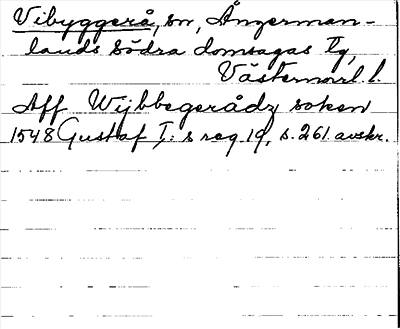 Vibyggerå, sn, Ångerman-
lands södra domsagas tg,
Västernorrl. l.
Aff Wijbbegerådz soken
1548 Gustaf I:s reg. 19, s. 261. avskr.